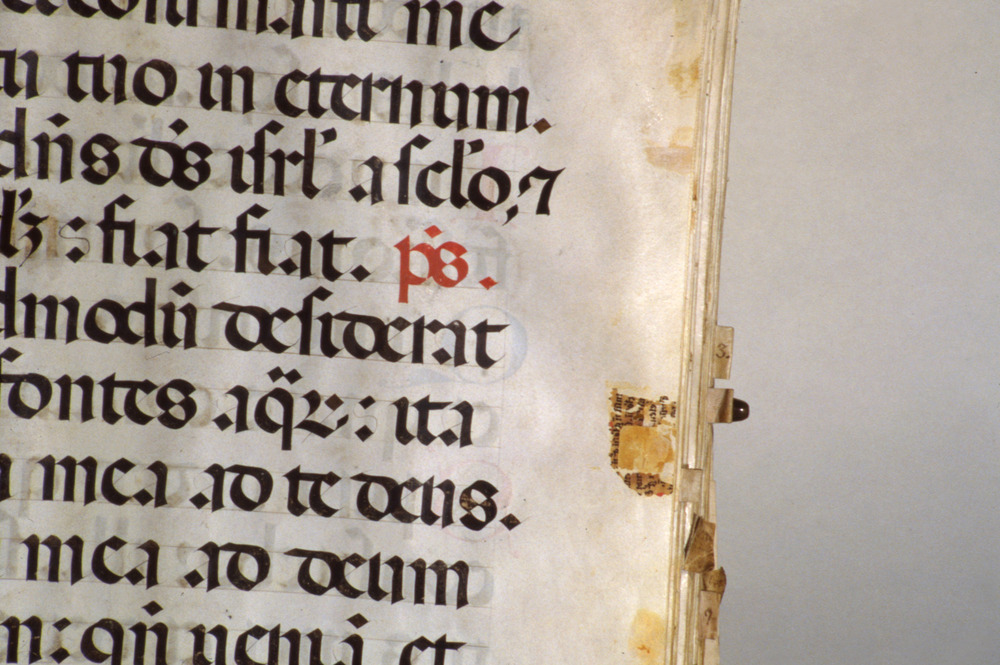 me
tuo in eternum.
dn̄s ds̄ isrl' a sclo, ⁊
fiat fiat. ps̄.
dmodū desiderat
fontes aq̄ꝝ: ita
mea ad te deus.
mea ad deum
qn̄ ueniā et
3.